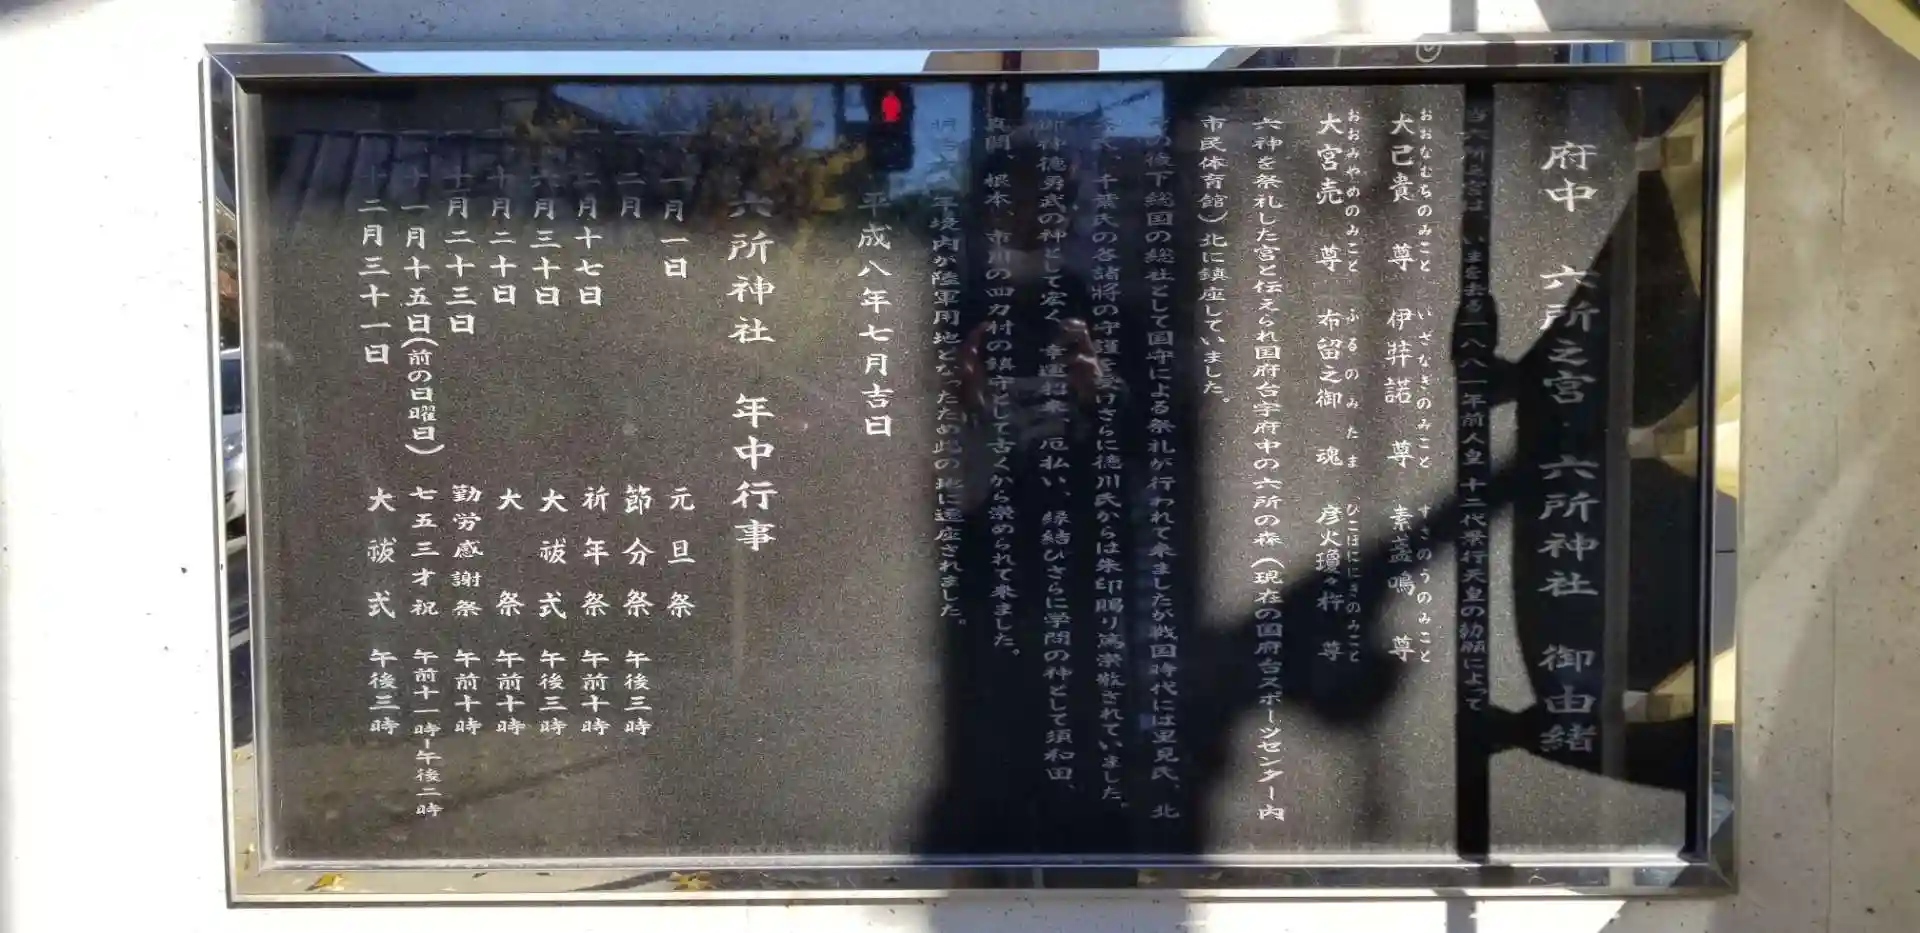 府中 六所之宮・六所神社 御由緒
当六所之宮は、いまを去る一八八一年前人皇十二代景行天皇の勅願によって
おおなむちのみこと いざなぎのみこと すさのうのみこと
大己貴 尊 伊弉諾 尊 素盞嗚 尊
おおみやめのみこと ふるのみたま ひこほににぎのみこと
大宮売 尊 布留之御 魂 彦火瓊々杵 尊
六神を祭礼した宮と伝えられ国府台字府中の六所の森(現在の国府台スポーツセンター内
市民体育館)北に鎮座していました。
その後下総国の総社として国守による祭礼が行われて来ましたが戦国時代には里見氏、北
条氏、千葉氏の各諸將の守護を受けさらに徳川氏からは朱印賜り篤崇敬されていました。
御神徳勇武の神として宏く、幸運招来、厄払い、縁結びさらに学問の神として須和田、
真間、根本、市川の四カ村の鎮守として古くから崇められて来ました。
年境内が陸軍用地となったため此の地に遷座されました。
平成八年七月吉日
六所神社 年中行事
一、一月一日 元旦祭
一、二月 節分祭 午後三時
一、二月十七日 祈年祭 午前十時
一、六月三十日 大祓式 午後三時
一、十月二十日 大祭 午前十時
一、十一月二十三日 勤労感謝祭 午前十時
一、十一月十五日(前の日曜日) 七五三才祝 午前十一時-午後二時
一、十二月三十一日 大祓式 午後三時